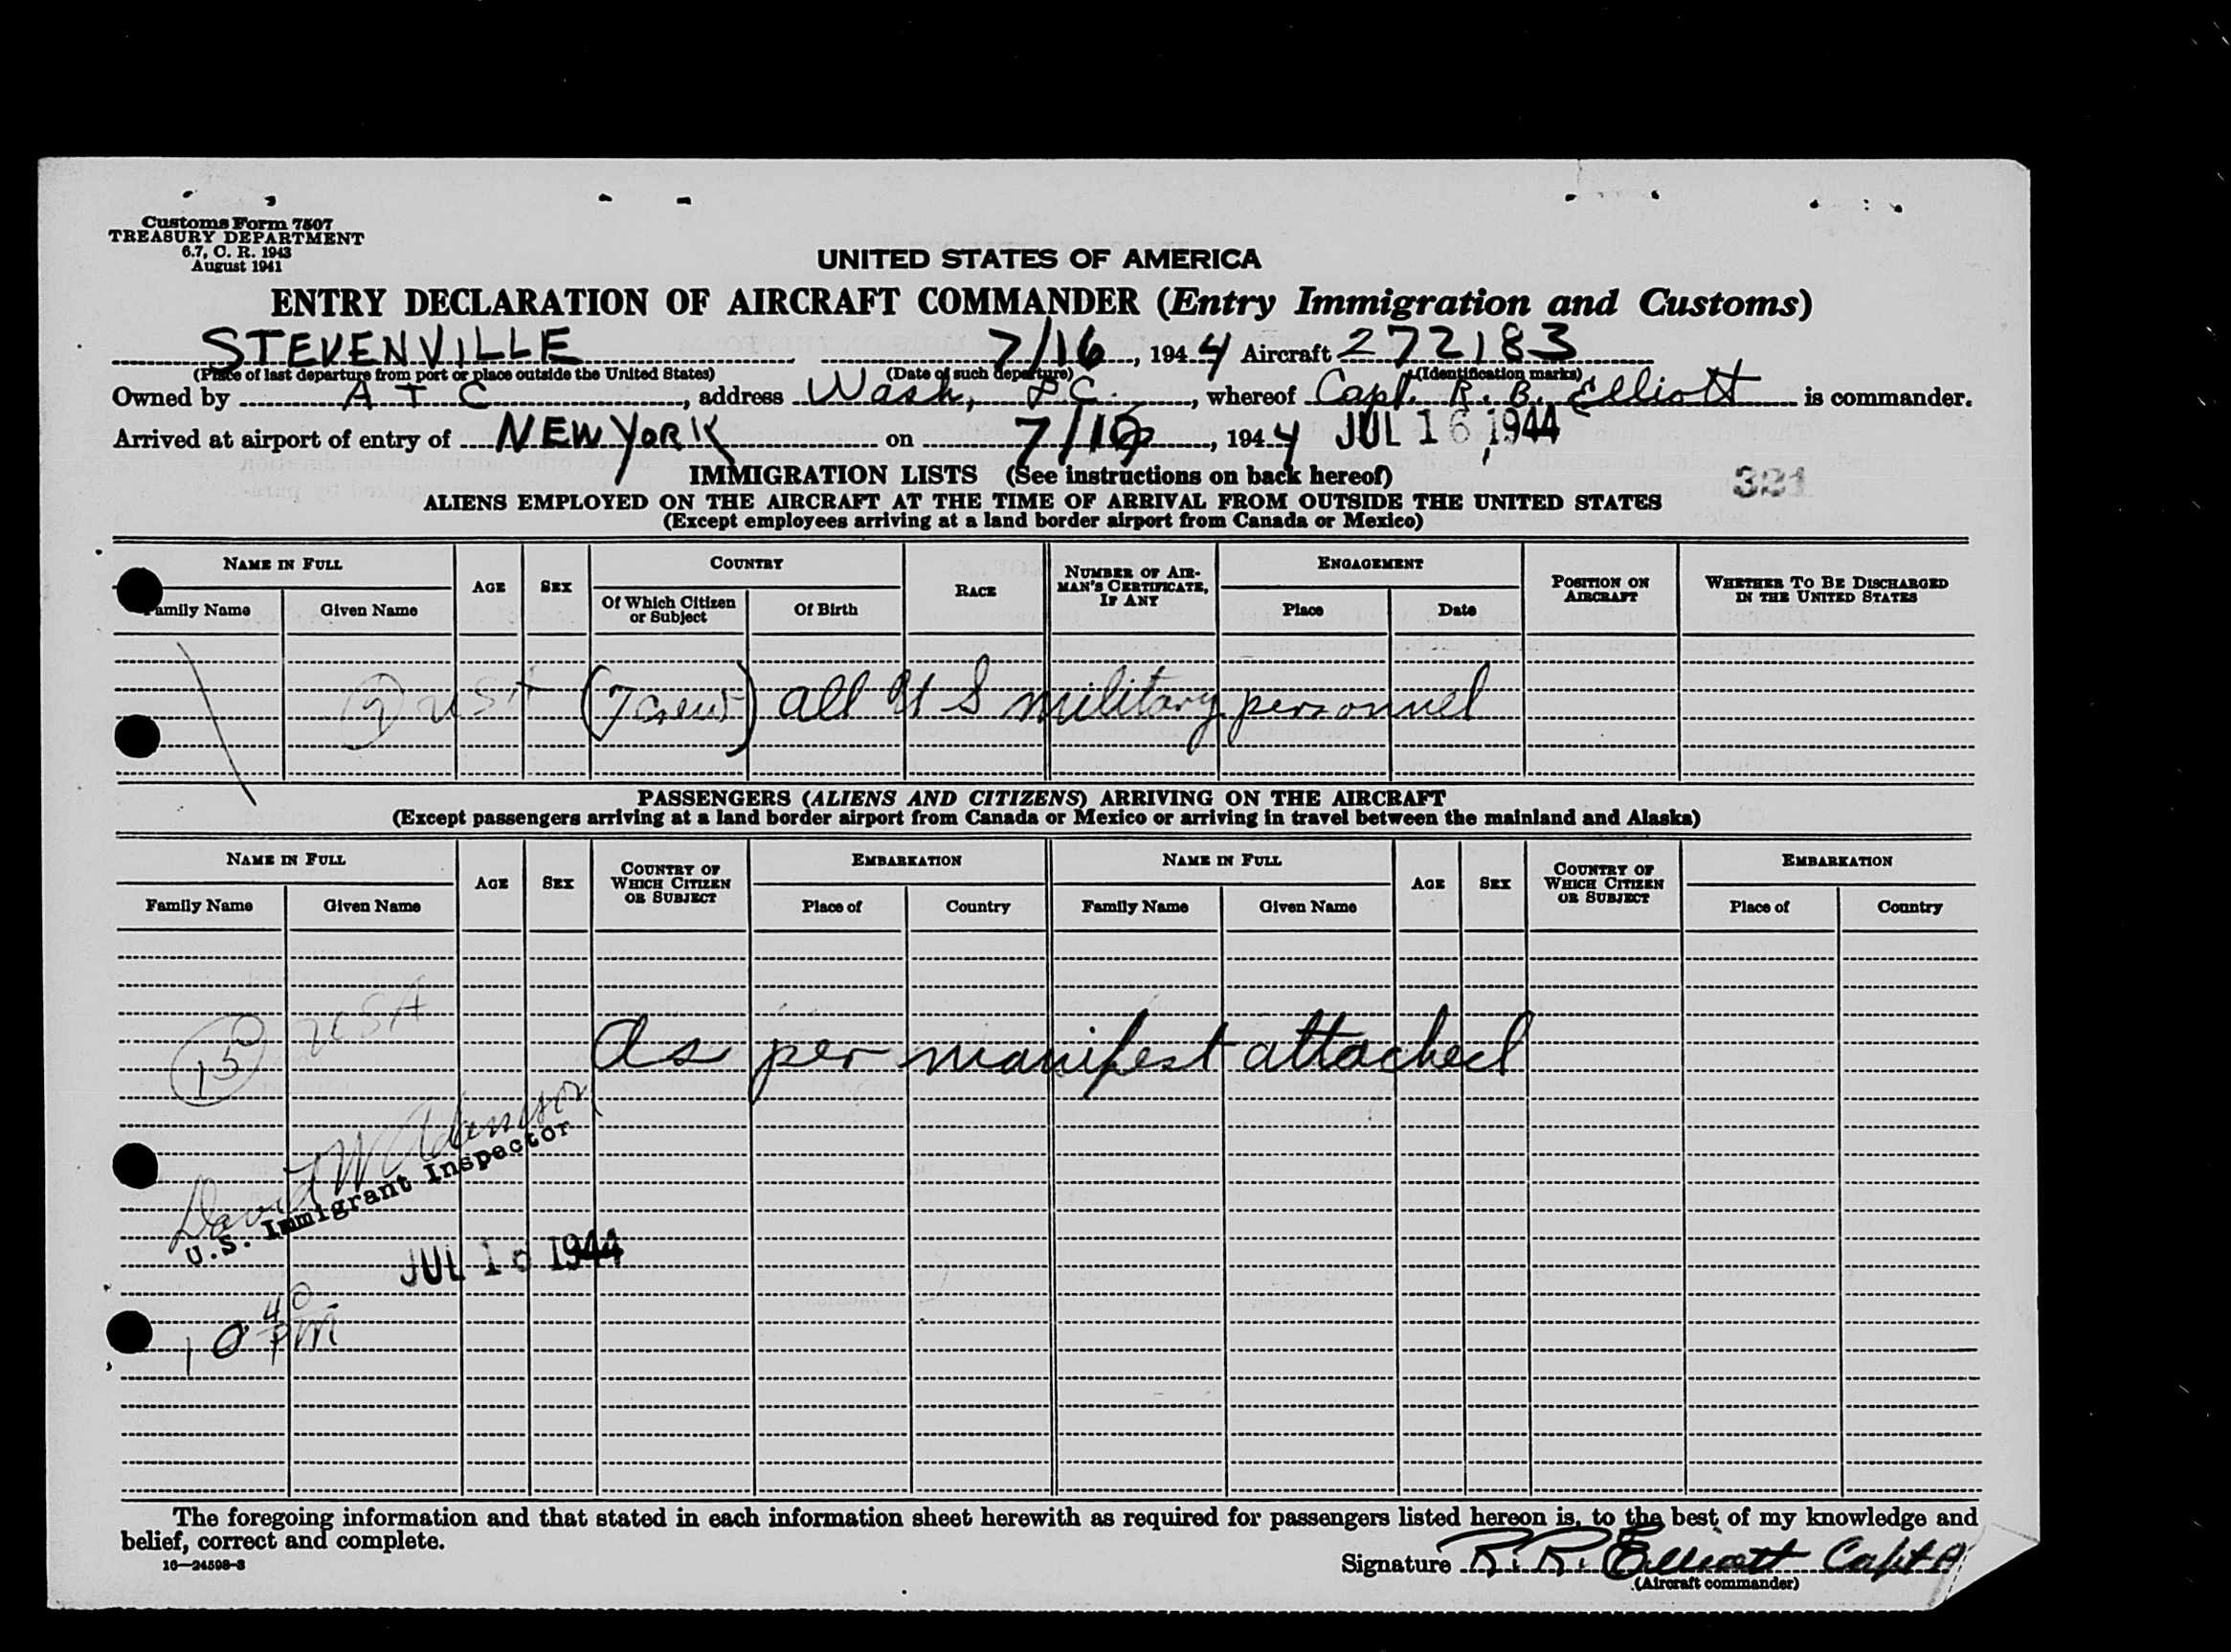 Customs Form 7507
TREASURY DEPARTMENT
6.7, C. R. 1943
August 1941
UNITED STATES OF AMERICA
ENTRY DECLARATION OF AIRCRAFT COMMANDER (Entry Immigration and Customs)
STEVENVILLE 7/16, 1944 Aircraft 272183
(Place of last departure from port or place outside the United States) (Date of such departure) (Identification marks)
Owned by A T C, address Wash, D C., whereof Capt. R. B. Elliott is commander.
Arrived at airport of entry of NEW YORK on 7/16, 1944 JUL 16 1944
IMMIGRATION LISTS (See instructions on back hereof)
321
ALIENS EMPLOYED ON THE AIRCRAFT AT THE TIME OF ARRIVAL FROM OUTSIDE THE UNITED STATES
(Except employees arriving at a land border airport from Canada or Mexico)
NAME IN FULL AGE SEX COUNTRY RACE NUMBER OF AIRMAN'S CERTIFICATE, IF ANY ENGAGEMENT POSITION ON AIRCRAFT WHETHER TO BE DISCHARGED IN THE UNITED STATES
Family Name Given Name Of Which Citizen or Subject Of Birth Place Date
USA (7 crew) all U S military personnel
PASSENGERS (ALIENS AND CITIZENS) ARRIVING ON THE AIRCRAFT
(Except passengers arriving at a land border airport from Canada or Mexico or arriving in travel between the mainland and Alaska)
NAME IN FULL AGE SEX COUNTRY OF WHICH CITIZEN OR SUBJECT EMBARKATION NAME IN FULL AGE SEX COUNTRY OF WHICH CITIZEN OR SUBJECT EMBARKATION
Family Name Given Name Place of Country Family Name Given Name Place of Country
15 USA
As per manifest attached
David W Adamson
U.S. Immigrant Inspector
JUL 16 1944
10 40 PM
The foregoing information and that stated in each information sheet herewith as required for passengers listed hereon is, to the best of my knowledge and
belief, correct and complete.
16—24598-3
Signature R. R. Elliott Capt A
(Aircraft commander)